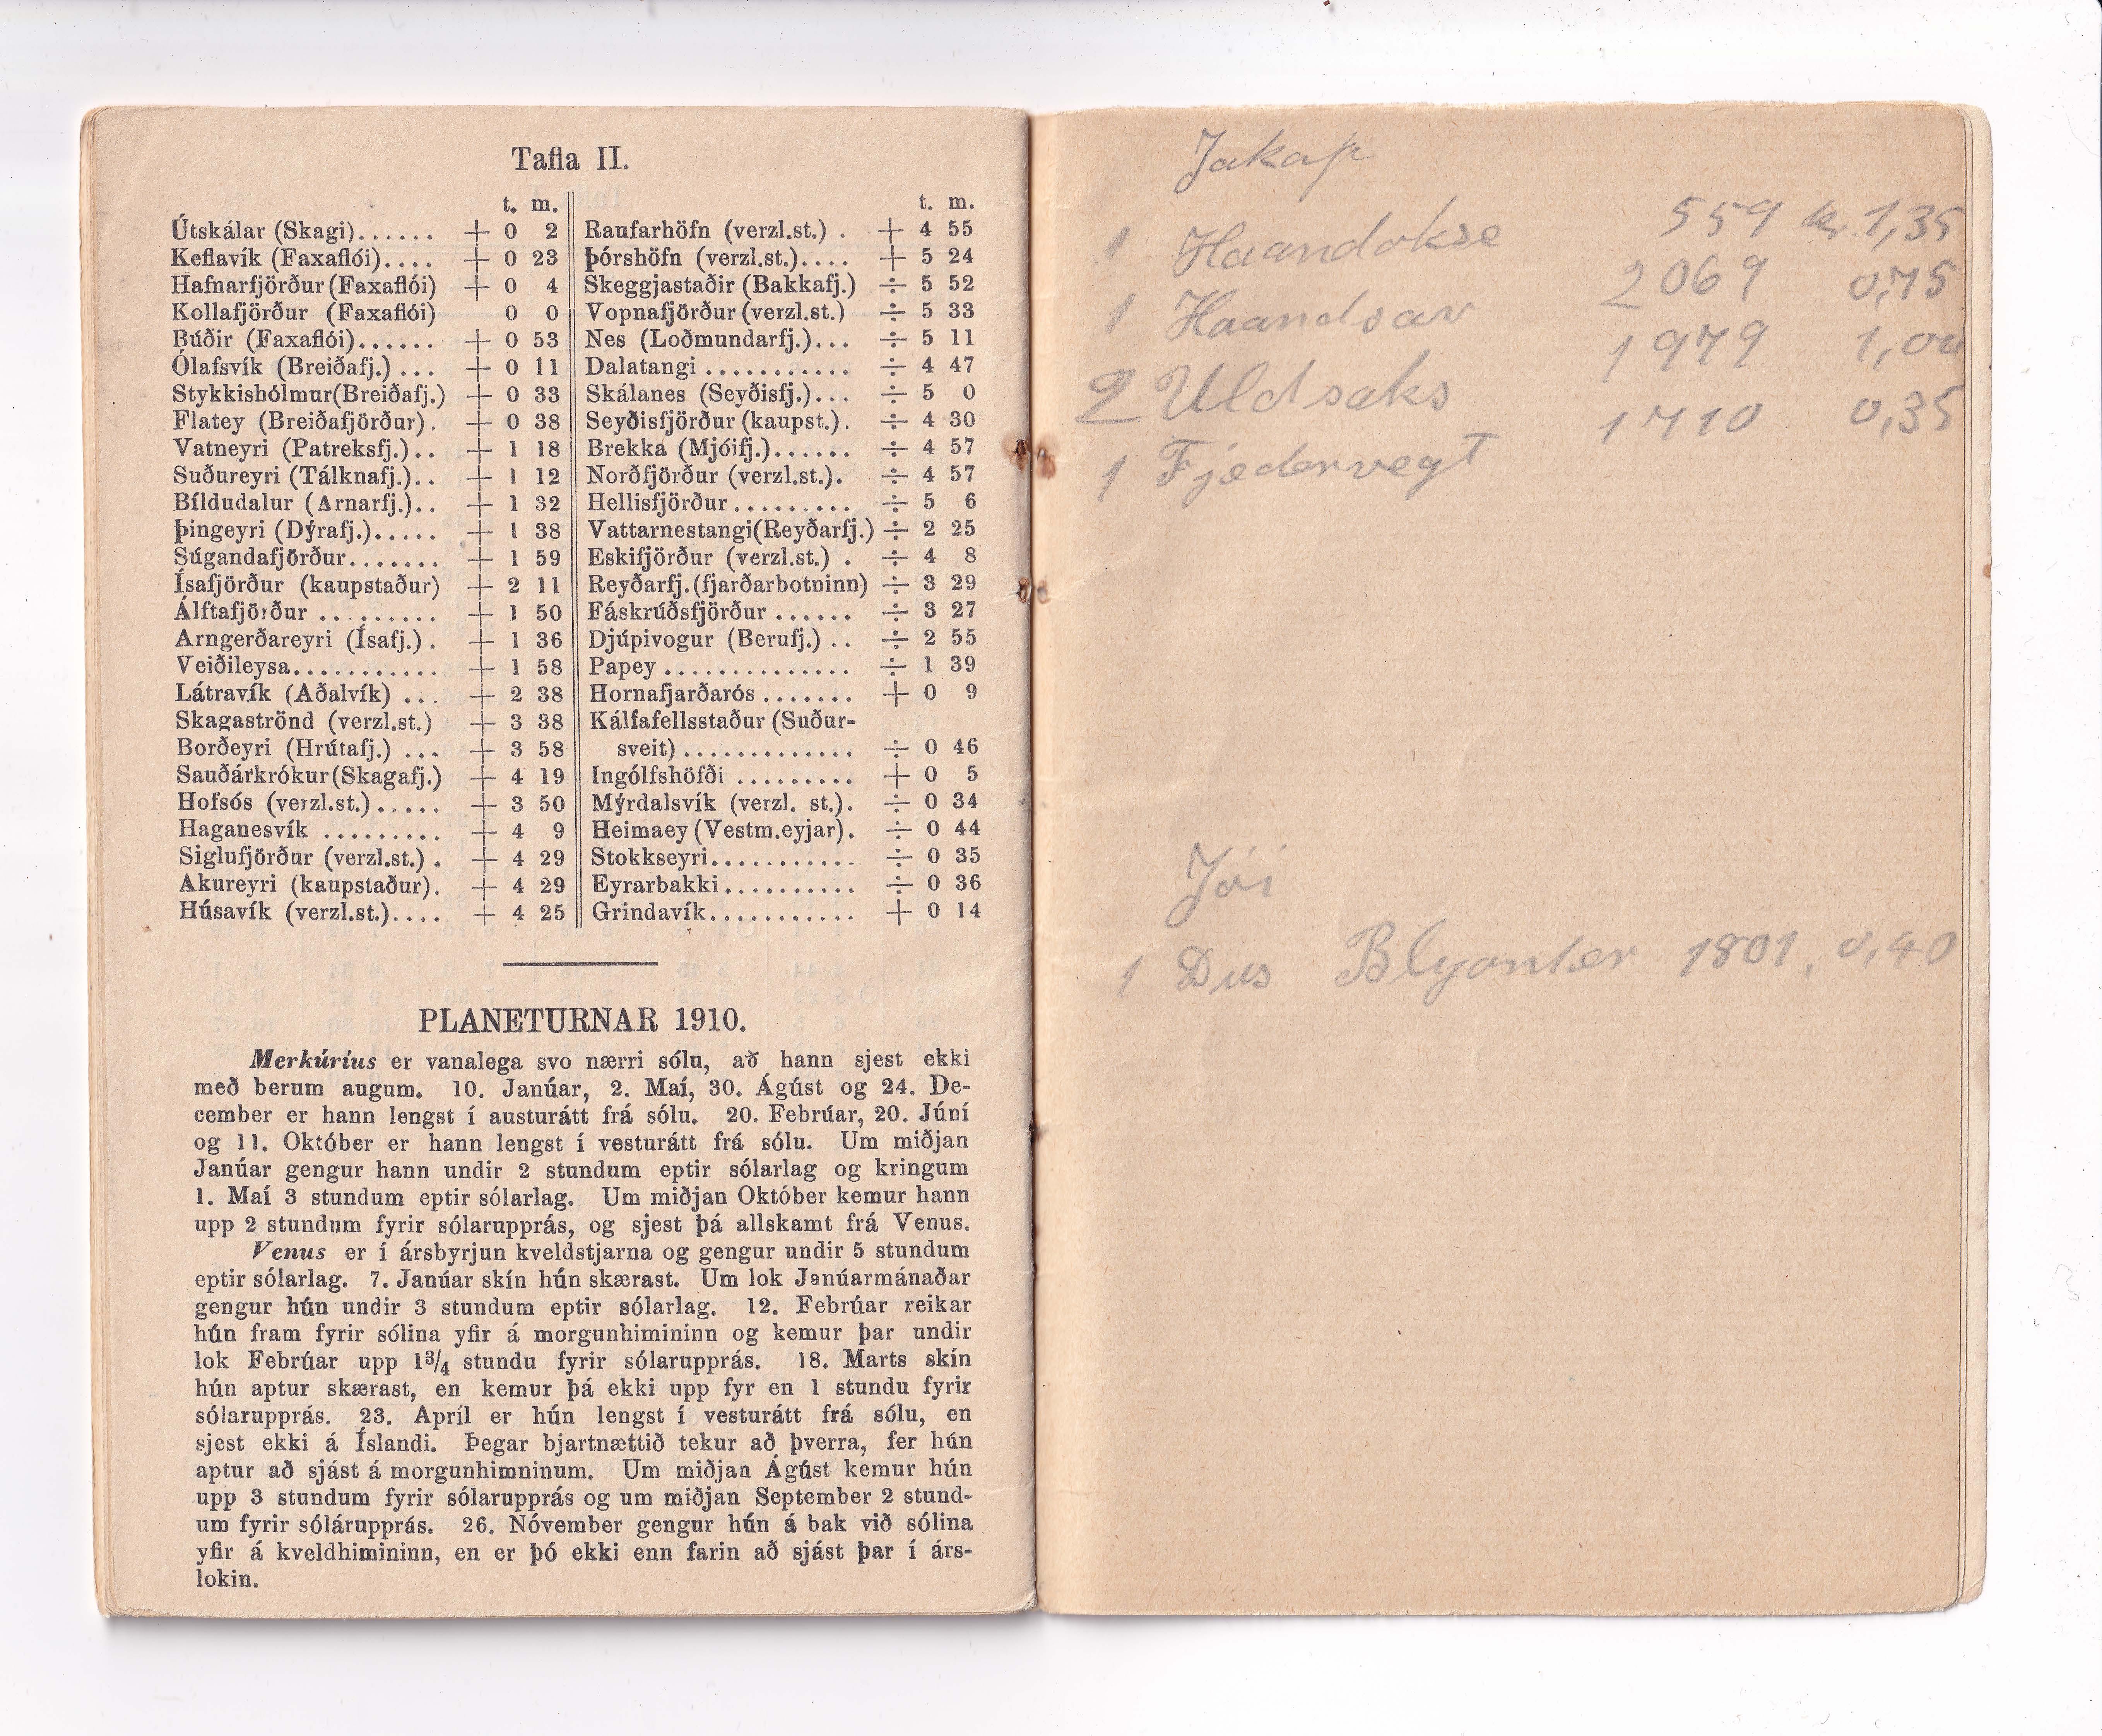 Tafla II.
t. m.
Útskálar (Skagi)...... + 0 2
Keflavík (Faxaflói).... + 0 23
Hafnarfjörður (Faxaflói) + 0 4
Kollafjörður (Faxaflói) 0 0
Búðir (Faxaflói)...... + 0 53
Ólafsvík (Breiðafj.) ... + 0 11
Stykkishólmur(Breiðafj.) + 0 33
Flatey (Breiðafjörður). + 0 38
Vatneyri (Patreksfj.).. + 1 18
Suðureyri (Tálknafj.).. + 1 12
Bíldudalur (Arnarfj.).. + 1 32
Þingeyri (Dýrafj.)..... + 1 38
Súgandafjörður....... + 1 59
Ísafjörður (kaupstaður) + 2 11
Álftafjörður ......... + 1 50
Arngerðareyri (Ísafj.). + 1 36
Veiðileysa........... + 1 58
Látravík (Aðalvík) ... + 2 38
Skagaströnd (verzl.st.) + 3 38
Borðeyri (Hrútafj.) ... + 3 58
Sauðárkrókur(Skagafj.) + 4 19
Hofsós (verzl.st.)..... + 3 50
Haganesvík ......... + 4 9
Siglufjörður (verzl.st.) . + 4 29
Akureyri (kaupstaður). + 4 29
Húsavík (verzl.st.).... + 4 25
t. m.
Raufarhöfn (verzl.st.) . + 4 55
Þórshöfn (verzl.st.).... + 5 24
Skeggjastaðir (Bakkafj.) ÷ 5 52
Vopnafjörður (verzl.st.) ÷ 5 33
Nes (Loðmundarfj.)... ÷ 5 11
Dalatangi ........... ÷ 4 47
Skálanes (Seyðisfj.)... ÷ 5 0
Seyðisfjörður (kaupst.). ÷ 4 30
Brekka (Mjóifj.)...... ÷ 4 57
Norðfjörður (verzl.st.). ÷ 4 57
Hellisfjörður......... ÷ 5 6
Vattarnestangi(Reyðarfj.) ÷ 2 25
Eskifjörður (verzl.st.) . ÷ 4 8
Reyðarfj.(fjarðarbotninn) ÷ 3 29
Fáskrúðsfjörður ...... ÷ 3 27
Djúpivogur (Berufj.) .. ÷ 2 55
Papey .............. ÷ 1 39
Hornafjarðarós ....... + 0 9
Kálfafellsstaður (Suður-
sveit) ............. ÷ 0 46
Ingólfshöfði ......... + 0 5
Mýrdalsvík (verzl. st.). ÷ 0 34
Heimaey (Vestm.eyjar). ÷ 0 44
Stokkseyri........... ÷ 0 35
Eyrarbakki.......... ÷ 0 36
Grindavík........... + 0 14
PLANETURNAR 1910.
Merkúríus er vanalega svo nærri sólu, að hann sjest ekki
með berum augum. 10. Janúar, 2. Maí, 30. Ágúst og 24. De-
cember er hann lengst í austurátt frá sólu. 20. Febrúar, 20. Júní
og 11. Október er hann lengst í vesturátt frá sólu. Um miðjan
Janúar gengur hann undir 2 stundum eptir sólarlag og kringum
1. Maí 3 stundum eptir sólarlag. Um miðjan Október kemur hann
upp 2 stundum fyrir sólarupprás, og sjest þá allskamt frá Venus.
Venus er í ársbyrjun kveldstjarna og gengur undir 5 stundum
eptir sólarlag. 7. Janúar skín hún skærast. Um lok Janúarmánaðar
gengur hún undir 3 stundum eptir sólarlag. 12. Febrúar reikar
hún fram fyrir sólina yfir á morgunhimininn og kemur þar undir
lok Febrúar upp 1 3/4 stundu fyrir sólarupprás. 18. Marts skín
hún aptur skærast, en kemur þá ekki upp fyr en 1 stundu fyrir
sólarupprás. 23. Apríl er hún lengst í vesturátt frá sólu, en
sjest ekki á Íslandi. Þegar bjartnættið tekur að þverra, fer hún
aptur að sjást á morgunhimninum. Um miðjan Ágúst kemur hún
upp 3 stundum fyrir sólarupprás og um miðjan September 2 stund-
um fyrir sólárupprás. 26. Nóvember gengur hún á bak við sólina
yfir á kveldhimininn, en er þó ekki enn farin að sjást þar í árs-
lokin.
Jakap
1 Haandokse 559 kr. 1,35
1 Haandsav 2069 0,75
2 Uldsaks 1979 1,00
1 Fjedervegt 1710 0,35
Jói
1 Dus Blyanter 1801, 0,40